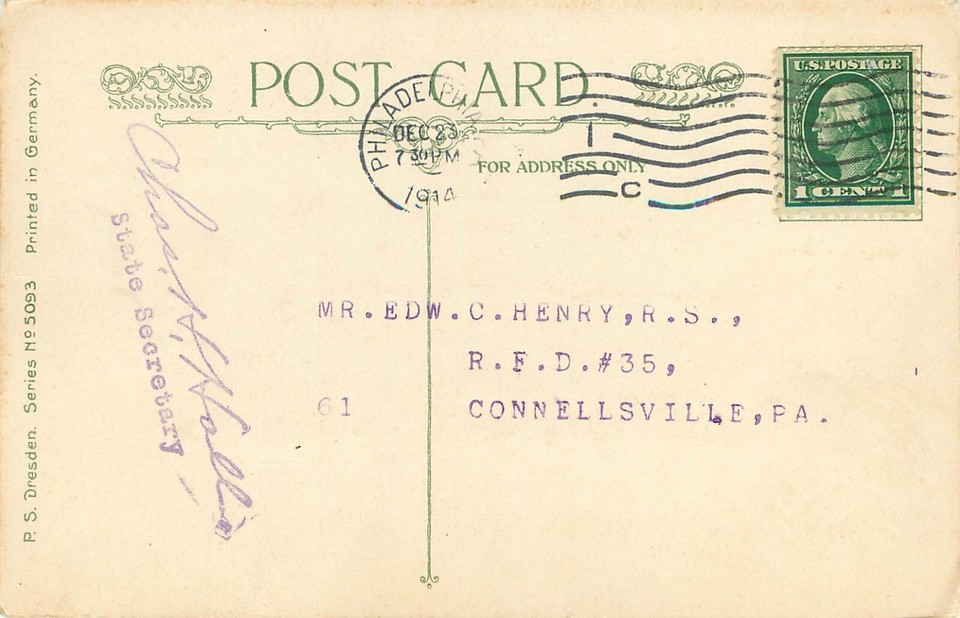 POST CARD.
FOR ADDRESS ONLY
PHILADELPHIA
DEC 23
7 30 PM
1914
1
C
U.S. POSTAGE
1 CENT 1
MR.EDW.C.HENRY,R.S.,
R.F.D.#35,
61 CONNELLSVILLE,PA.
Chas. H. Hollis
State Secretary
P. S. Dresden. Series No 5093 Printed in Germany.